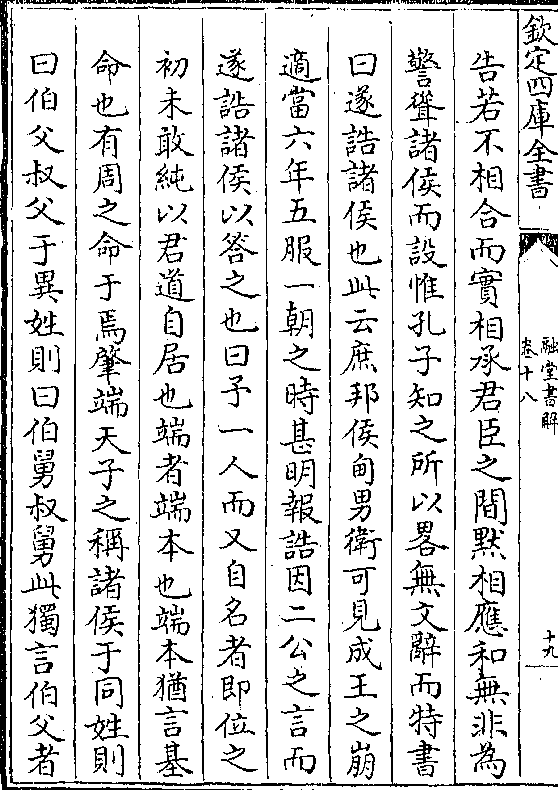 欽定四庫全書
融堂書解
卷十八
十九
告若不相合而實相承君臣之間默相應和無非為
警聳諸侯而設惟孔子知之所以畧無文辭而特書
曰遂誥諸侯也此云庶邦侯甸男衛可見成王之崩
適當六年五服一朝之時甚明報誥因二公之言而
遂誥諸侯以答之也曰予一人而又自名者即位之
初未敢純以君道自居也端者端本也端本猶言基
命也有周之命于焉肇端天子之稱諸侯于同姓則
曰伯父叔父于異姓則曰伯舅叔舅此獨言伯父者